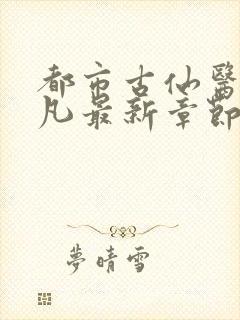 都市古仙醫
凡最新章節
夢晴雪